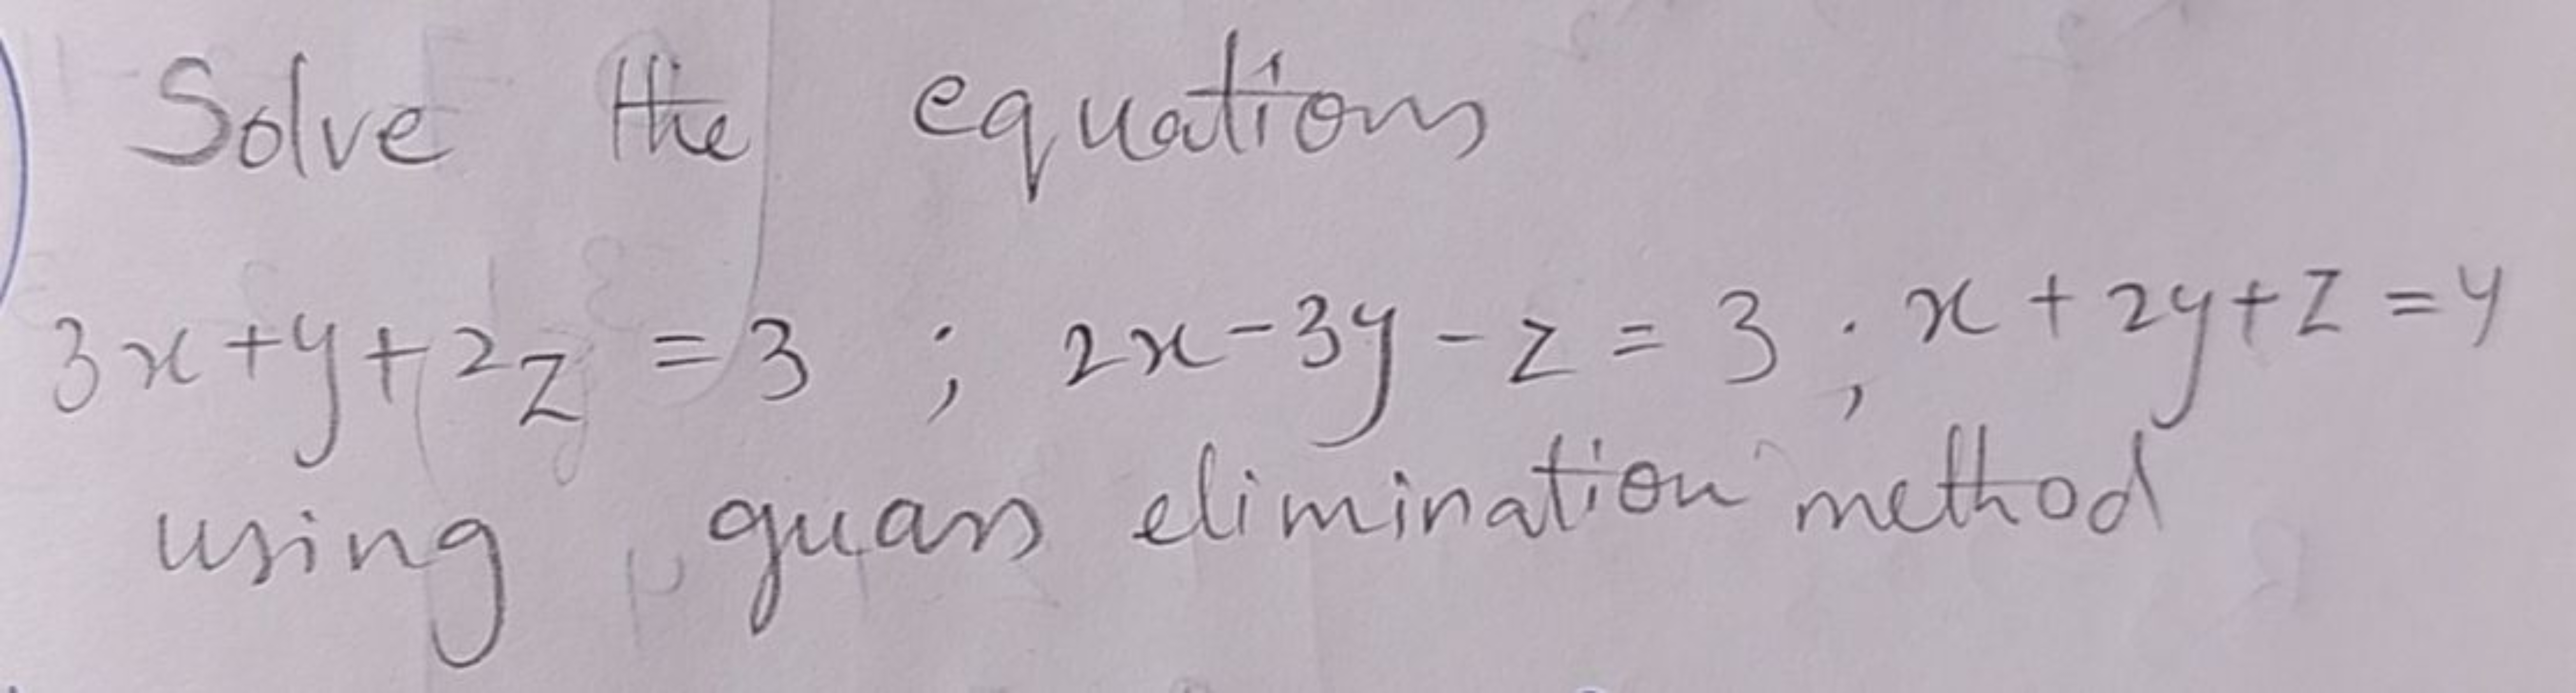 Solve the equations
3x+y+2z = 3 ; 2x-3y-z = 3 ; x+2y+z = 4
using guass elimination method